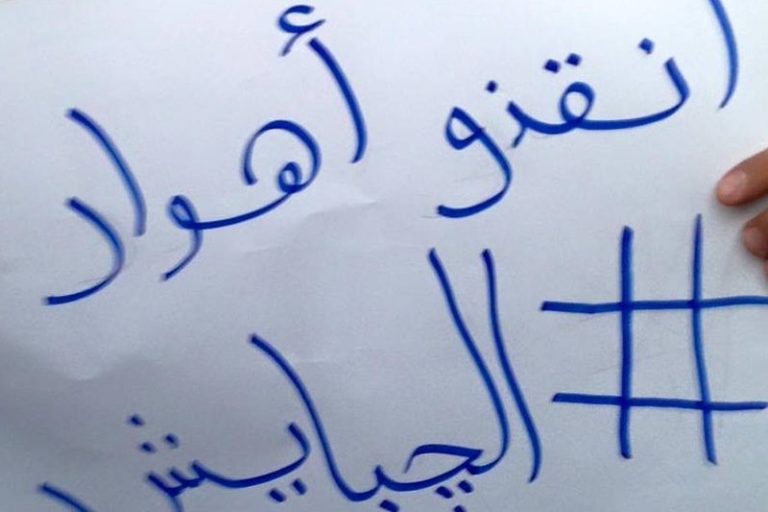 انقذو أهوار
#الچبايش